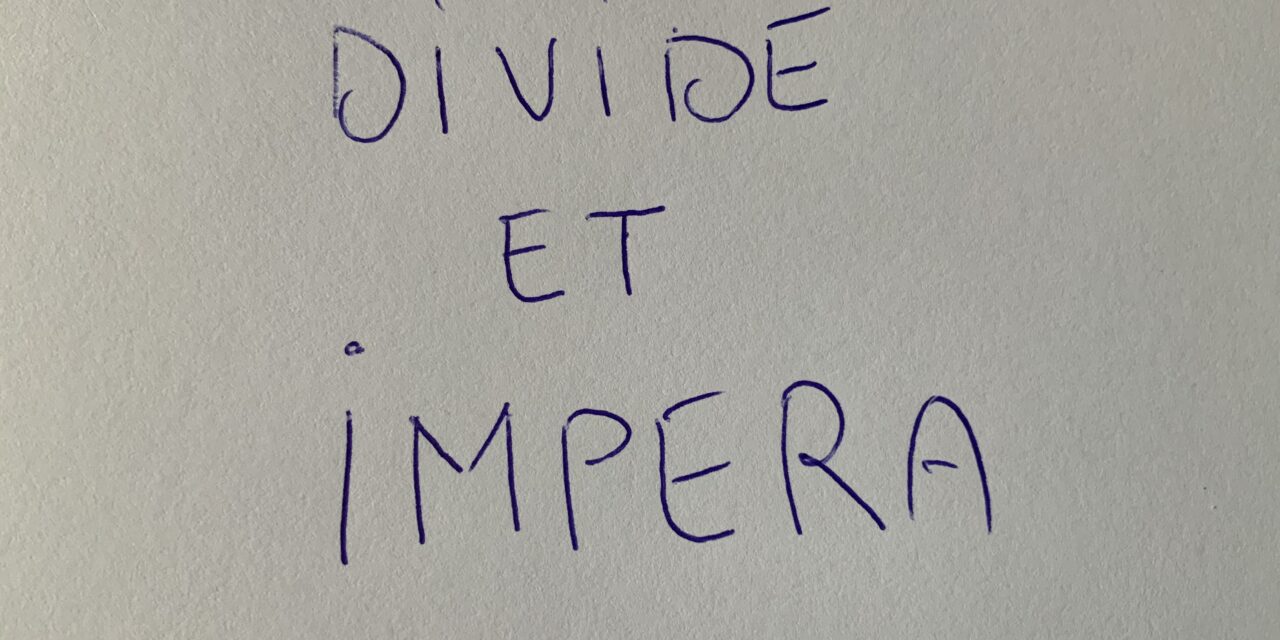 DiViDE
ET
iMPERA